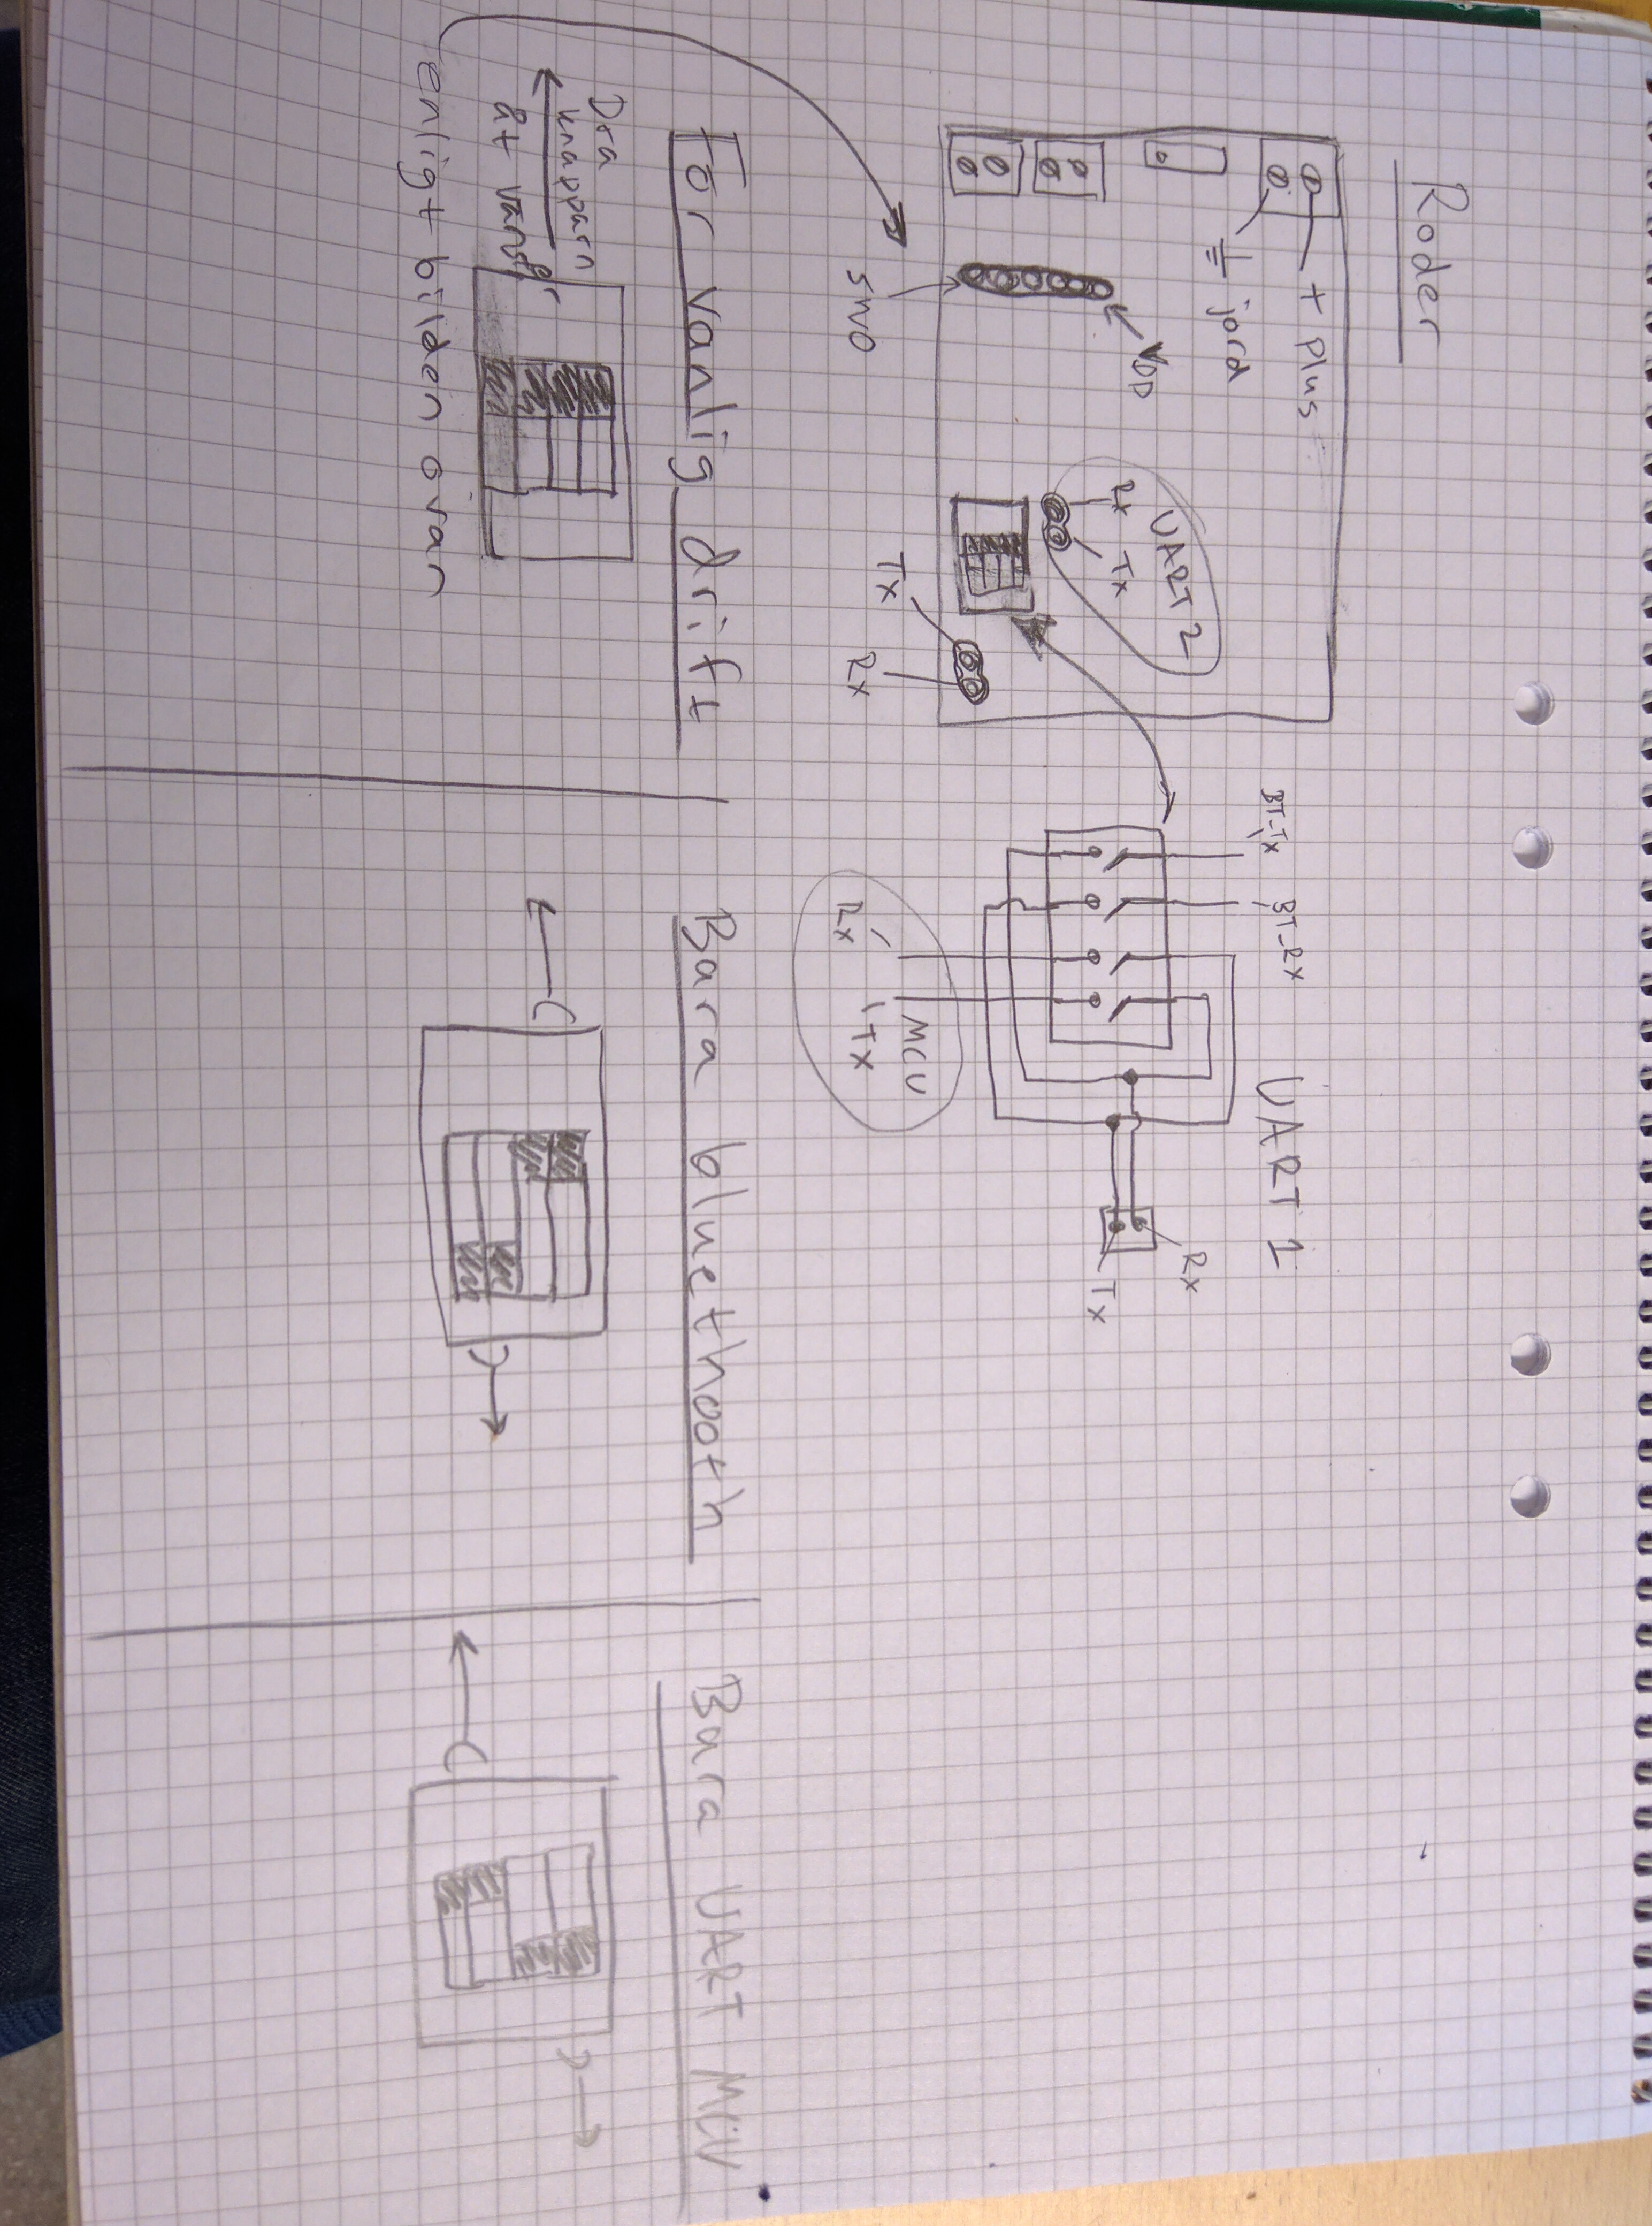 Roder
+ plus
jord
VDD
SWO
UART 2
Rx Tx
Tx
Rx
BT-Tx
BT-RX
UART 1
MCU
Rx
Tx
Rx
Tx
För vanlig drift
Dra
knapparn
åt vänster
enligt bilden ovan
Bara bluethooth
Bara UART MCU